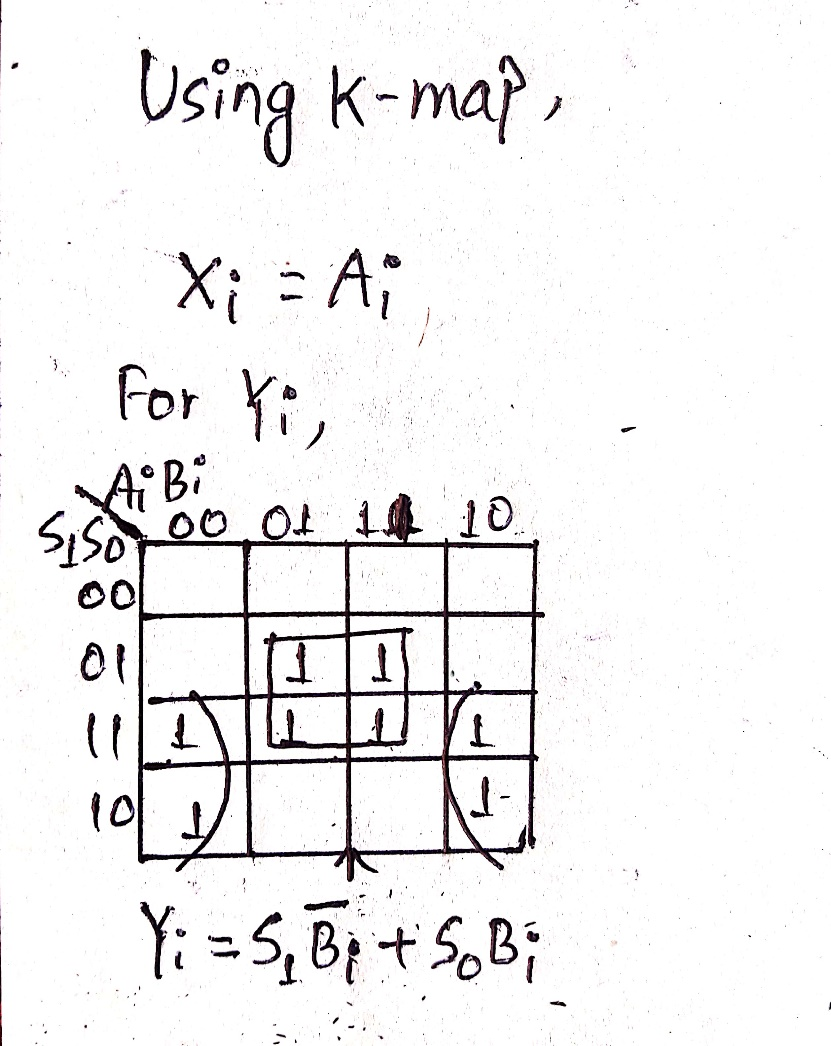 Using K-map,
Xi = Ai
For Yi,
AiBi
S1S0 00 01 11 10
00
01 1 1
11 1 1 1 1
10 1 1
Yi = S1B̅i + S0Bi